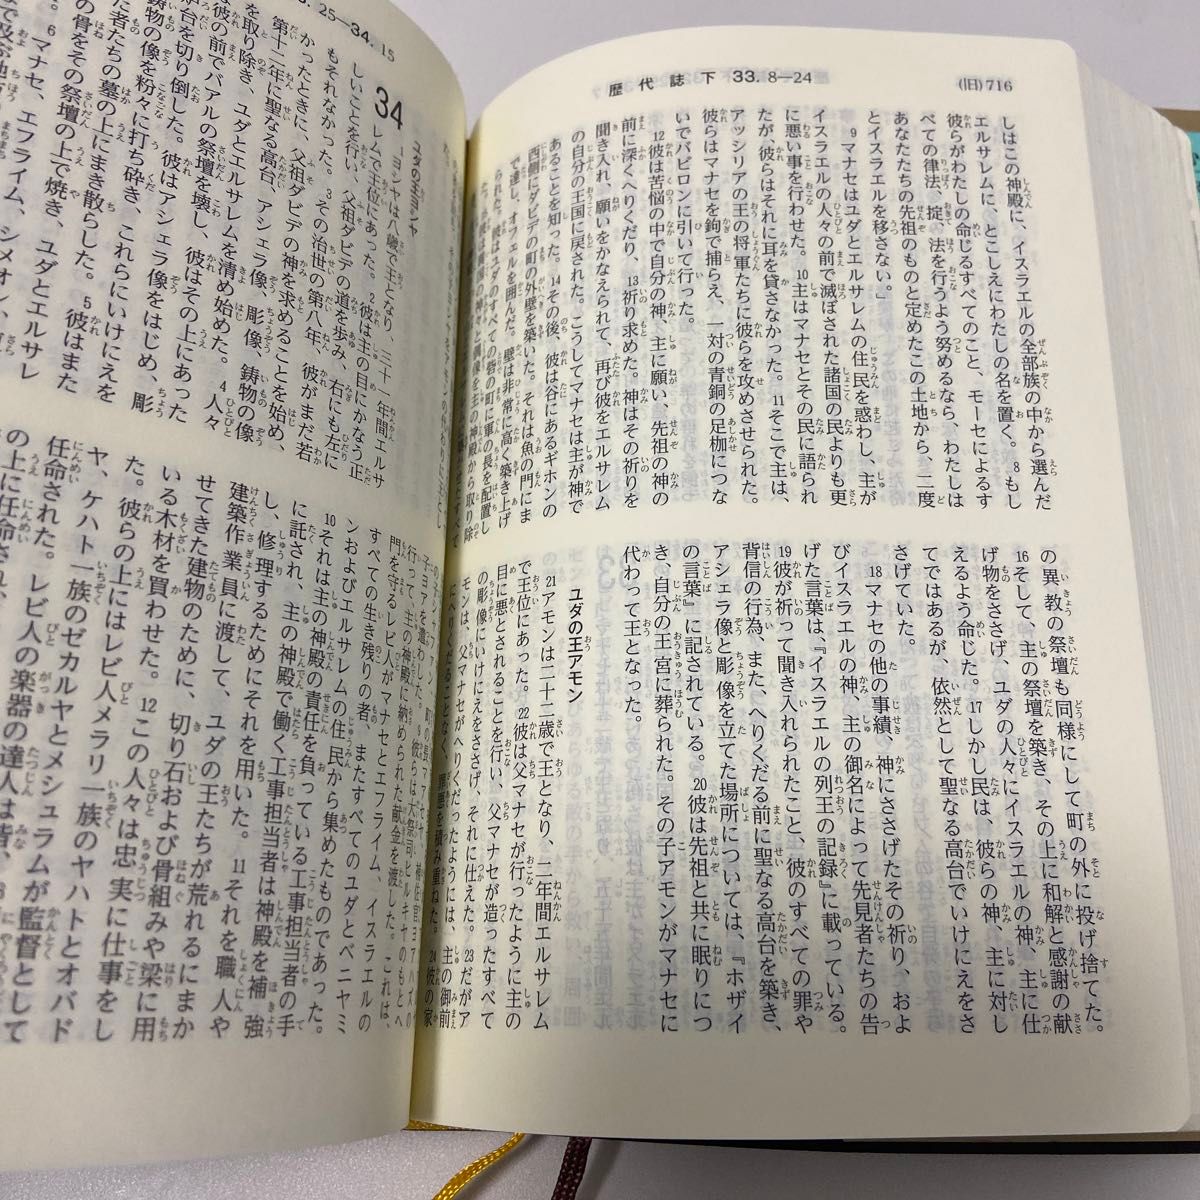 歴代誌下 33. 8―24
(旧)716
しはこの神殿に、イスラエルの全部族の中から選んだ
エルサレムに、とこしえにわたしの名を置く。8もし
彼らがわたしの命じるすべてのこと、モーセによるす
べての律法、掟、法を行うよう努めるなら、わたしは
あなたたちの先祖のものと定めたこの土地から、二度
とイスラエルを移さない。」
9マナセはユダとエルサレムの住民を惑わし、主が
イスラエルの人々の前で滅ぼされた諸国の民よりも更
に悪い事を行わせた。10主はマナセとその民に語られ
たが、彼らはそれに耳を貸さなかった。11そこで主は、
アッシリアの王の将軍たちに彼らを攻めさせられた。
彼らはマナセを鉤で捕らえ、一対の青銅の足枷につな
いでバビロンに引いて行った。
12彼は苦悩の中で自分の神、主に願い、先祖の神の
前に深くへりくだり、13祈り求めた。神はその祈りを
聞き入れ、願いをかなえられて、再び彼をエルサレム
の自分の王国に戻された。こうしてマナセは主が神で
あることを知った。14その後、彼は谷にあるギホンの
西側にダビデの町の外壁を築いた。それは魚の門にま
で達し、オフェルを囲んだ。壁は非常に高く築き上げ
られた。彼はユダのすべての砦の町に軍の長を配置し
の異教の祭壇も同様にして町の外に投げ捨てた。
16そして、主の祭壇を築き、その上に和解と感謝の献
げ物をささげ、ユダの人々にイスラエルの神、主に仕
えるよう命じた。17しかし民は、彼らの神、主に対し
てではあるが、依然として聖なる高台でいけにえをさ
さげていた。
18マナセの他の事績、神にささげたその祈り、およ
びイスラエルの神、主の御名によって先見者たちの告
げた言葉は、『イスラエルの列王の記録』に載っている。
19彼が祈って聞き入れられたこと、彼のすべての罪や
背信の行為、また、へりくだる前に聖なる高台を築き、
アシェラ像と彫像を立てた場所については、『ホザイ
の言葉』に記されている。20彼は先祖と共に眠りにつ
き、自分の王宮に葬られた。その子アモンがマナセに
代わって王となった。
ユダの王アモン
21アモンは二十二歳で王となり、二年間エルサレム
で王位にあった。22彼は父マナセが行ったように主の
目に悪とされることを行い、父マナセが造ったすべて
の彫像にいけにえをささげ、それに仕えた。23だがア
モンは、父マナセがへりくだったようには、主の御前
にへりくだることなく、罪悪を積み重ねた。24彼の家
25―34. 15
34
ユダの王ヨシヤ
1ヨシヤは八歳で王となり、三十一年間エルサ
レムで王位にあった。2彼は主の目にかなう正
しいことを行い、父祖ダビデの道を歩み、右にも左に
もそれなかった。3その治世の第八年、彼がまだ若
かったときに、父祖ダビデの神を求めることを始め、
第十二年に聖なる高台、アシェラ像、彫像、鋳物の像
を取り除き、ユダとエルサレムを清め始めた。4人々
は彼の前でバアルの祭壇を壊し、彼はその上にあった
香炉台を切り倒した。彼はアシェラ像をはじめ、彫
鋳物の像を粉々に打ち砕き、これらにいけにえを
た者たちの墓の上にまき散らした。5彼はまた
の骨をその祭壇の上で焼き、ユダとエルサレ
6マナセ、エフライム、シメオン、
行って、主の神殿に納められた献金を渡した。これは、
門を守るレビ人がマナセとエフライム、イスラエルの
すべての生き残りの者、またすべてのユダとベニヤミ
ンおよびエルサレムの住民から集めたものであった。
10それは主の神殿の責任を負っている工事担当者の手
に託され、主の神殿で働く工事担当者は神殿を補強
し、修理するためにそれを用いた。11それを職人や
建築作業員に渡して、ユダの王たちが荒れるにまか
せてきた建物のために、切り石および骨組みや梁に用
いる木材を買わせた。12この人々は忠実に仕事をし
た。彼らの上にはレビ人メラリ一族のヤハトとオバド
ヤ、ケハト一族のゼカルヤとメシュラムが監督として
任命された。レビ人の楽器の達人は皆、